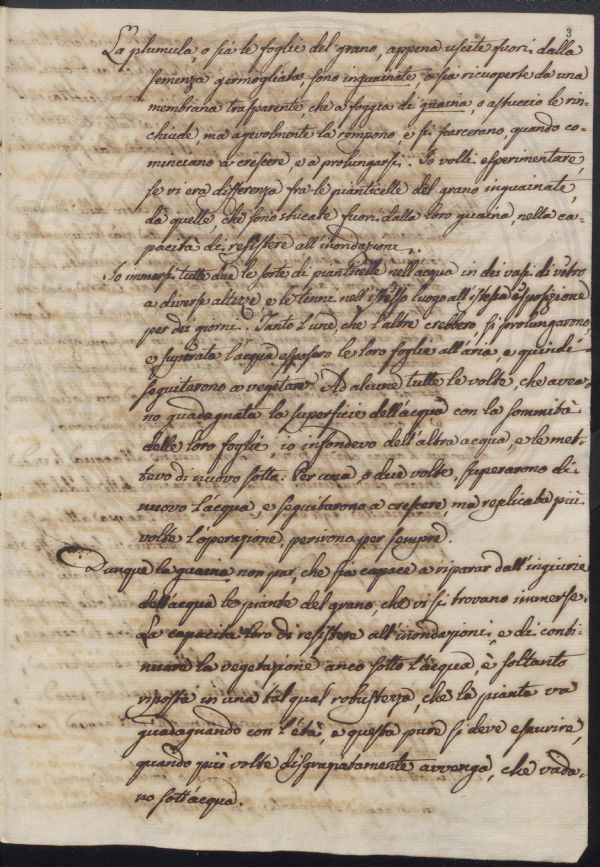 3
La plumula, o sia le foglie del grano, appena uscite fuori dalla
semenza germogliata, sono inguainate, o sia ricuoperte da una
membrana trasparente, che a foggia di guaina, o astuccio le rin-
chiude, ma agevolmente la rompono, e si scarcerano, quando co-
minciano a crescere, e a prolungarsi. Io volli esperimentare,
se vi era differenza fra le pianticelle del grano inguainate,
da quelle che sono sbucate fuori dalla loro guaina, nella ca-
pacità di resistere all'inondazioni.
Io immersi tutte due le sorte di pianticelle nell'acqua in dei vasi di vetro
a diverse altezze, e le tenni nell'istesso luogo all'istessa esposizione
per dei giorni. Tanto l'une, che l'altre crebbero, si prolungarono,
e superata l'acqua esposero le loro foglie all'aria, e quindi
seguitarono a vegetare. Ad alcune tutte le volte, che avea-
no guadagnata la superficie dell'acqua con la sommità
delle loro foglie, io infondevo dell'altra acqua, e le met-
tevo di nuovo sotto. Per una, o due volte, superarono di
nuovo l'acqua, e seguitarono a crescere, ma replicata più
volte l'operazione, perirono per sempre.
Dunque la guaina non par, che sia capace a riparar dall'ingiurie
dell'acqua le piante del grano, che vi si trovano immerse.
La capacità loro di resistere all'inondazioni, e di conti-
nuare la vegetazione anco sotto l'acqua, è soltanto
riposta in una tal qual robustezza, che la pianta va
guadagnando con l'età, e questa pure si deve esaurire,
quando più volte disgraziatamente avvenga, che vada-
no sott'acqua.